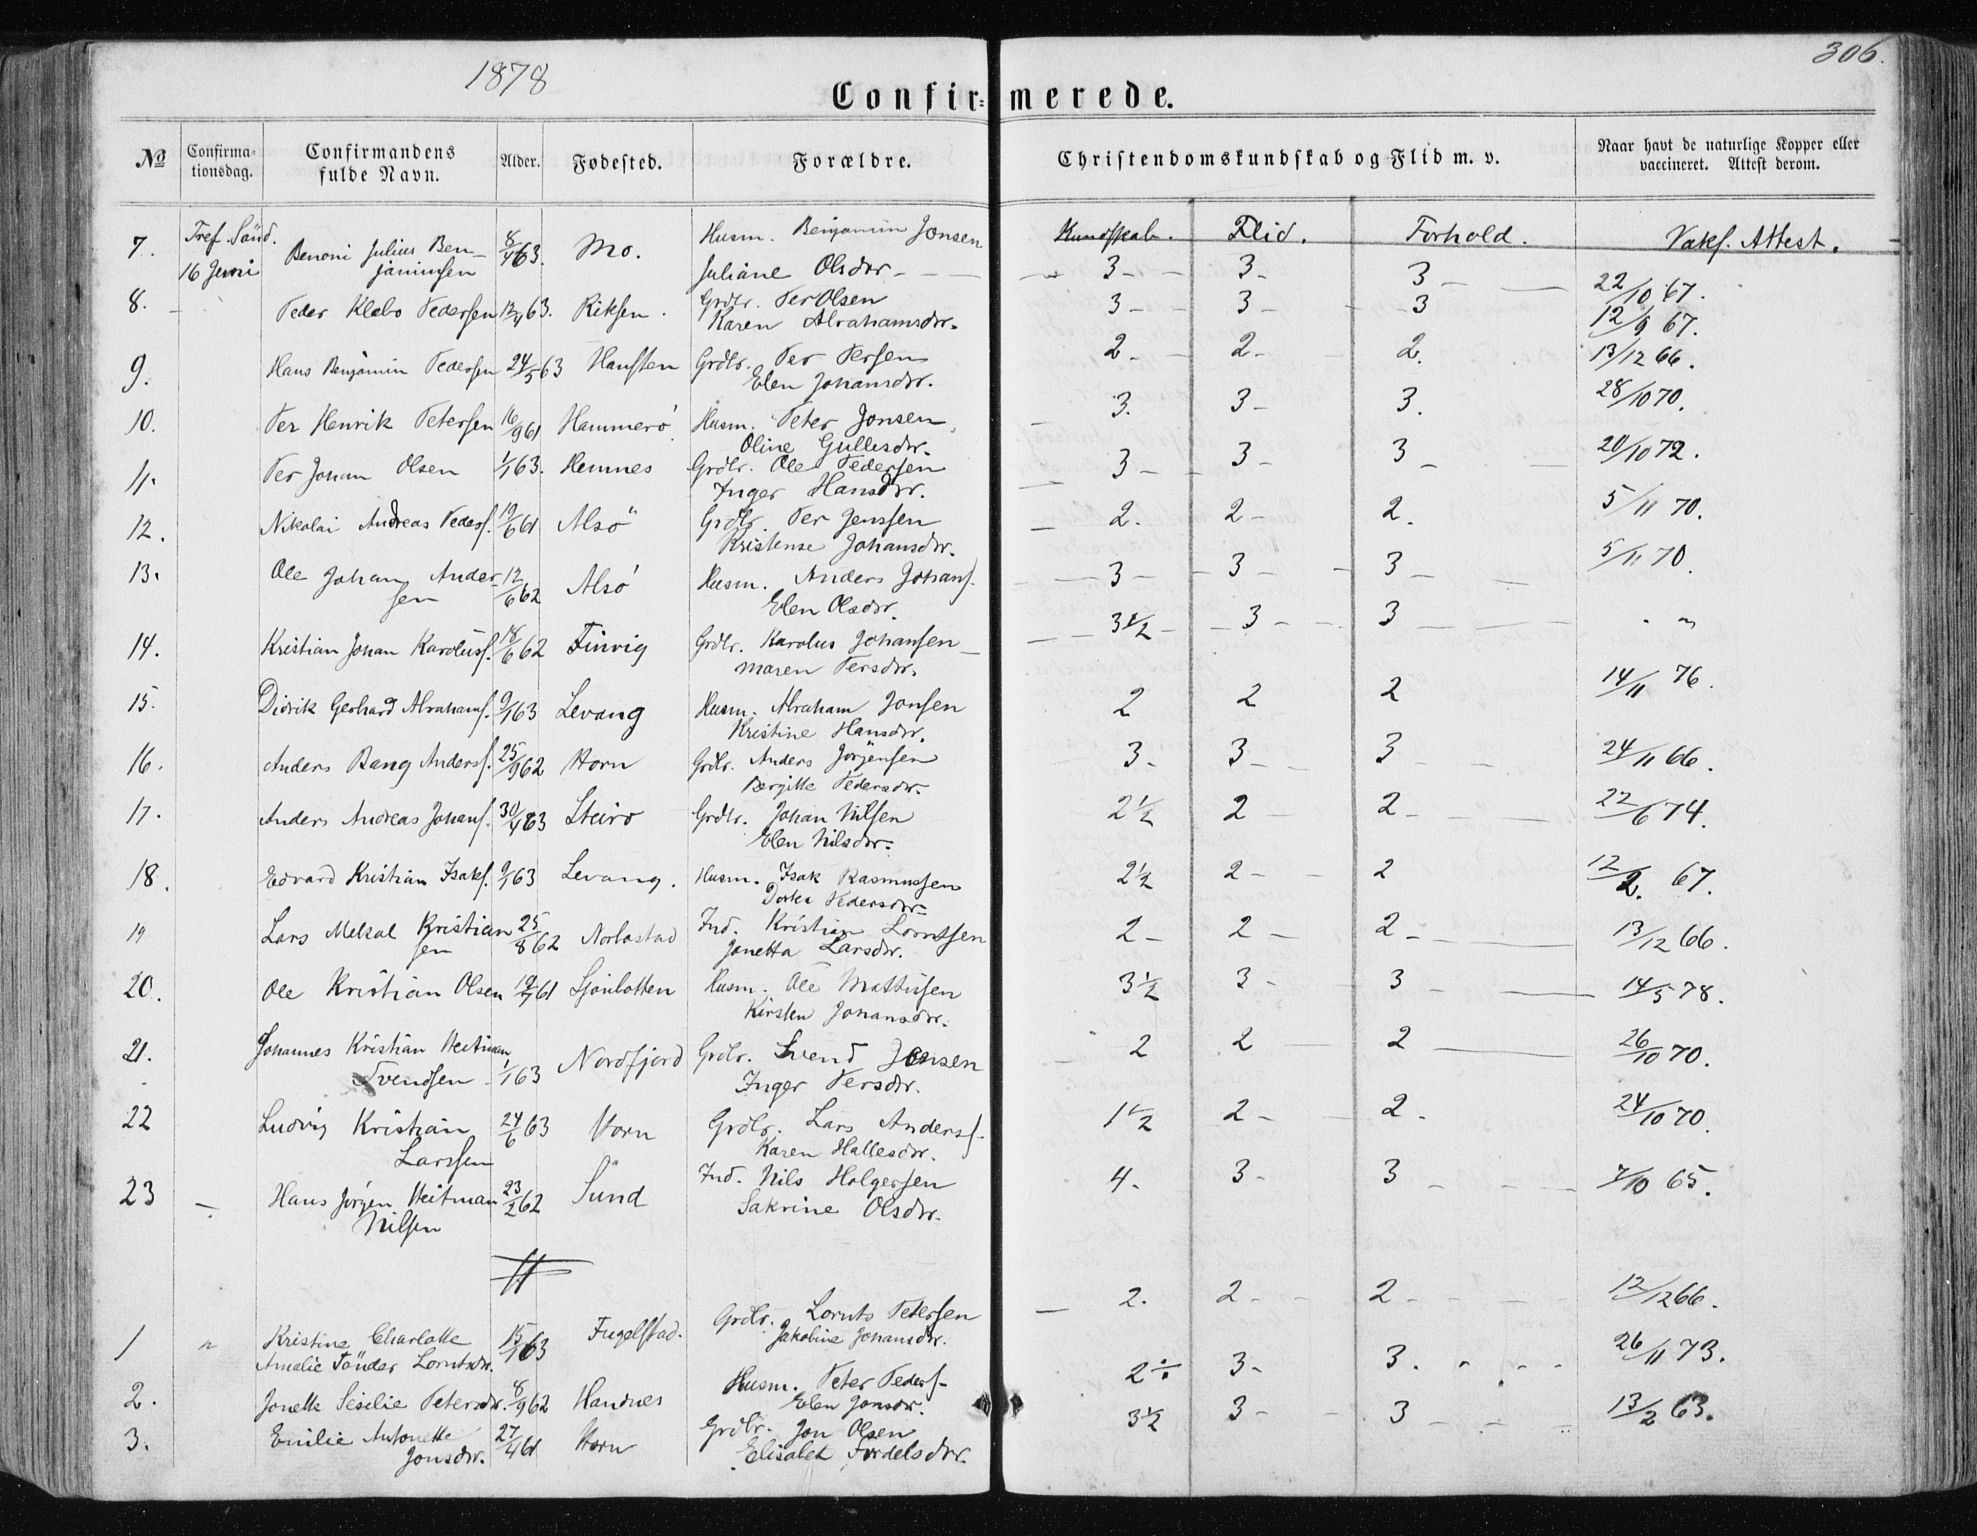 1878
306.
Confirmerede.
No
Confirmationsdag.
Confirmandens fulde Navn.
Alder.
Fødested.
Forældre.
Christendomskundskab og Flid m. v.
Naar havt de naturlige Kopper eller vaccineret. Attest derom.
Kundskab. Flid. Forhold. Vakс. Attest.
7. Tref. Sønd. Benoni Julius Ben- 8/4 63. Mo. Husm. Benjamin Jonsen 3 - 3 - 3 - 22/10 67.
16 Juni jaminsen Juliane Olsdtr
8. Peder Klebo Pedersen 12/4 63. Riksen. Grdbr. Per Olsen 3 - 3 - 3 12/9 67.
Karen Abrahamsdtr.
9. Hans Benjamin Pedersen 24/5 63 Hansten Grdbr. Per Persen 2 - 2 - 2. 13/12 66.
Elen Johansdtr.
10. Per Henrik Petersen 16/9 61 Hammerö Husm. Peter Jonsen 3. 3 - 3. 28/10 70.
Oline Gullesdtr.
11. Per Johan Olsen 1/1 63. Hemnes Grdbr. Ole Pedersen 3 - 3 - 3 - 20/10 72.
Inger Hansdtr.
12. Nikolai Andreas Peders. 19/6 61 Alsö Grdbr. Per Jenssen 2. 2 - 2. 5/11 70.
Kristense Johansdtr.
13. Ole Johan Ander- 12/6 62 Alsö Husm. Anders Johans. 3 - 3 - 3 - 5/11 70.
sen Elen Olsdtr.
14. Kristian Johan Karolus. 18/6 62 Finvig Grdbr. Karolus Johansen 3 1/2 - 3 - 3 - . "
Maren Persdtr.
15. Didrik Gerhard Abrahams. 9/1 63 Levang Husm. Abraham Jonsen 2 2 2 14/11 76.
Kristine Hansdtr.
16. Anders Bang Anders. 25/9 62 Horn Grdbr. Anders Jørgensen 3. 3 - 3 - 24/11 66.
Bergitte Pedersdtr.
17. Anders Andreas Johans. 30/4 63 Steiro Grdbr. Johan Nilsen 2 1/2 2 - 2 - 22/6 74.
Elen Nilsdtr.
18. Edvard Kristian Isaks. 9/1 63 Levang. Husm. Isak Rasmussen 2 1/2 2 - 2 12/2. 67.
Dortea Pedersdtr.
19 Lars Mekal Kristian 25/8 62 Norbostad Ind. Kristian Lorntsen 2 - 2 - 2 - 13/12 66.
sen Janetta Larsdtr.
20. Ole Kristian Olsen 19/7 61 Sjonbotten Husm. Ole Mattisen 3 1/2 3 - 3 - 14/5 78.
Kirsten Johansdtr.
21. Johannes Kristian Heitman 1/1 63 Nordfjord Grdbr. Svend Jensen 2 2 2 26/10 70.
Svendsen Inger Persdtr.
22 Ludvig Kristian 24/6 63 Horn Grdbr. Lars Anders. 1 1/2 2 - 2. 24/10 70.
Larsen Karen Hallesdtr.
23 Hans Jørgen Heitman 23/2 62 Sund Ind. Nils Holgersen 4. 3 - 3 - 7/10 65.
Nilsen Sakrine Olsdtr.
1 " Kristine Charlotte 15/1 63 Fugelstad. Grdbr. Lornts Petersen 2. 2 - 2 - 12/12 66.
Amalie Tönder Lorntsdtr. Jakobine Johansdtr.
2. Jonette Sesilie Petersdtr. 8/9 62 Handnes Husm. Peter Peders. 2 ÷ 3 - 3. 26/11 73.
Elen Jonsdtr.
3. Emilie Antonette 27/4 61 Horn Grdbr. Jon Olsen 3 1/2 3 - 3 - 13/2 63.
Jonsdtr. Elisabet Fordelsdtr.